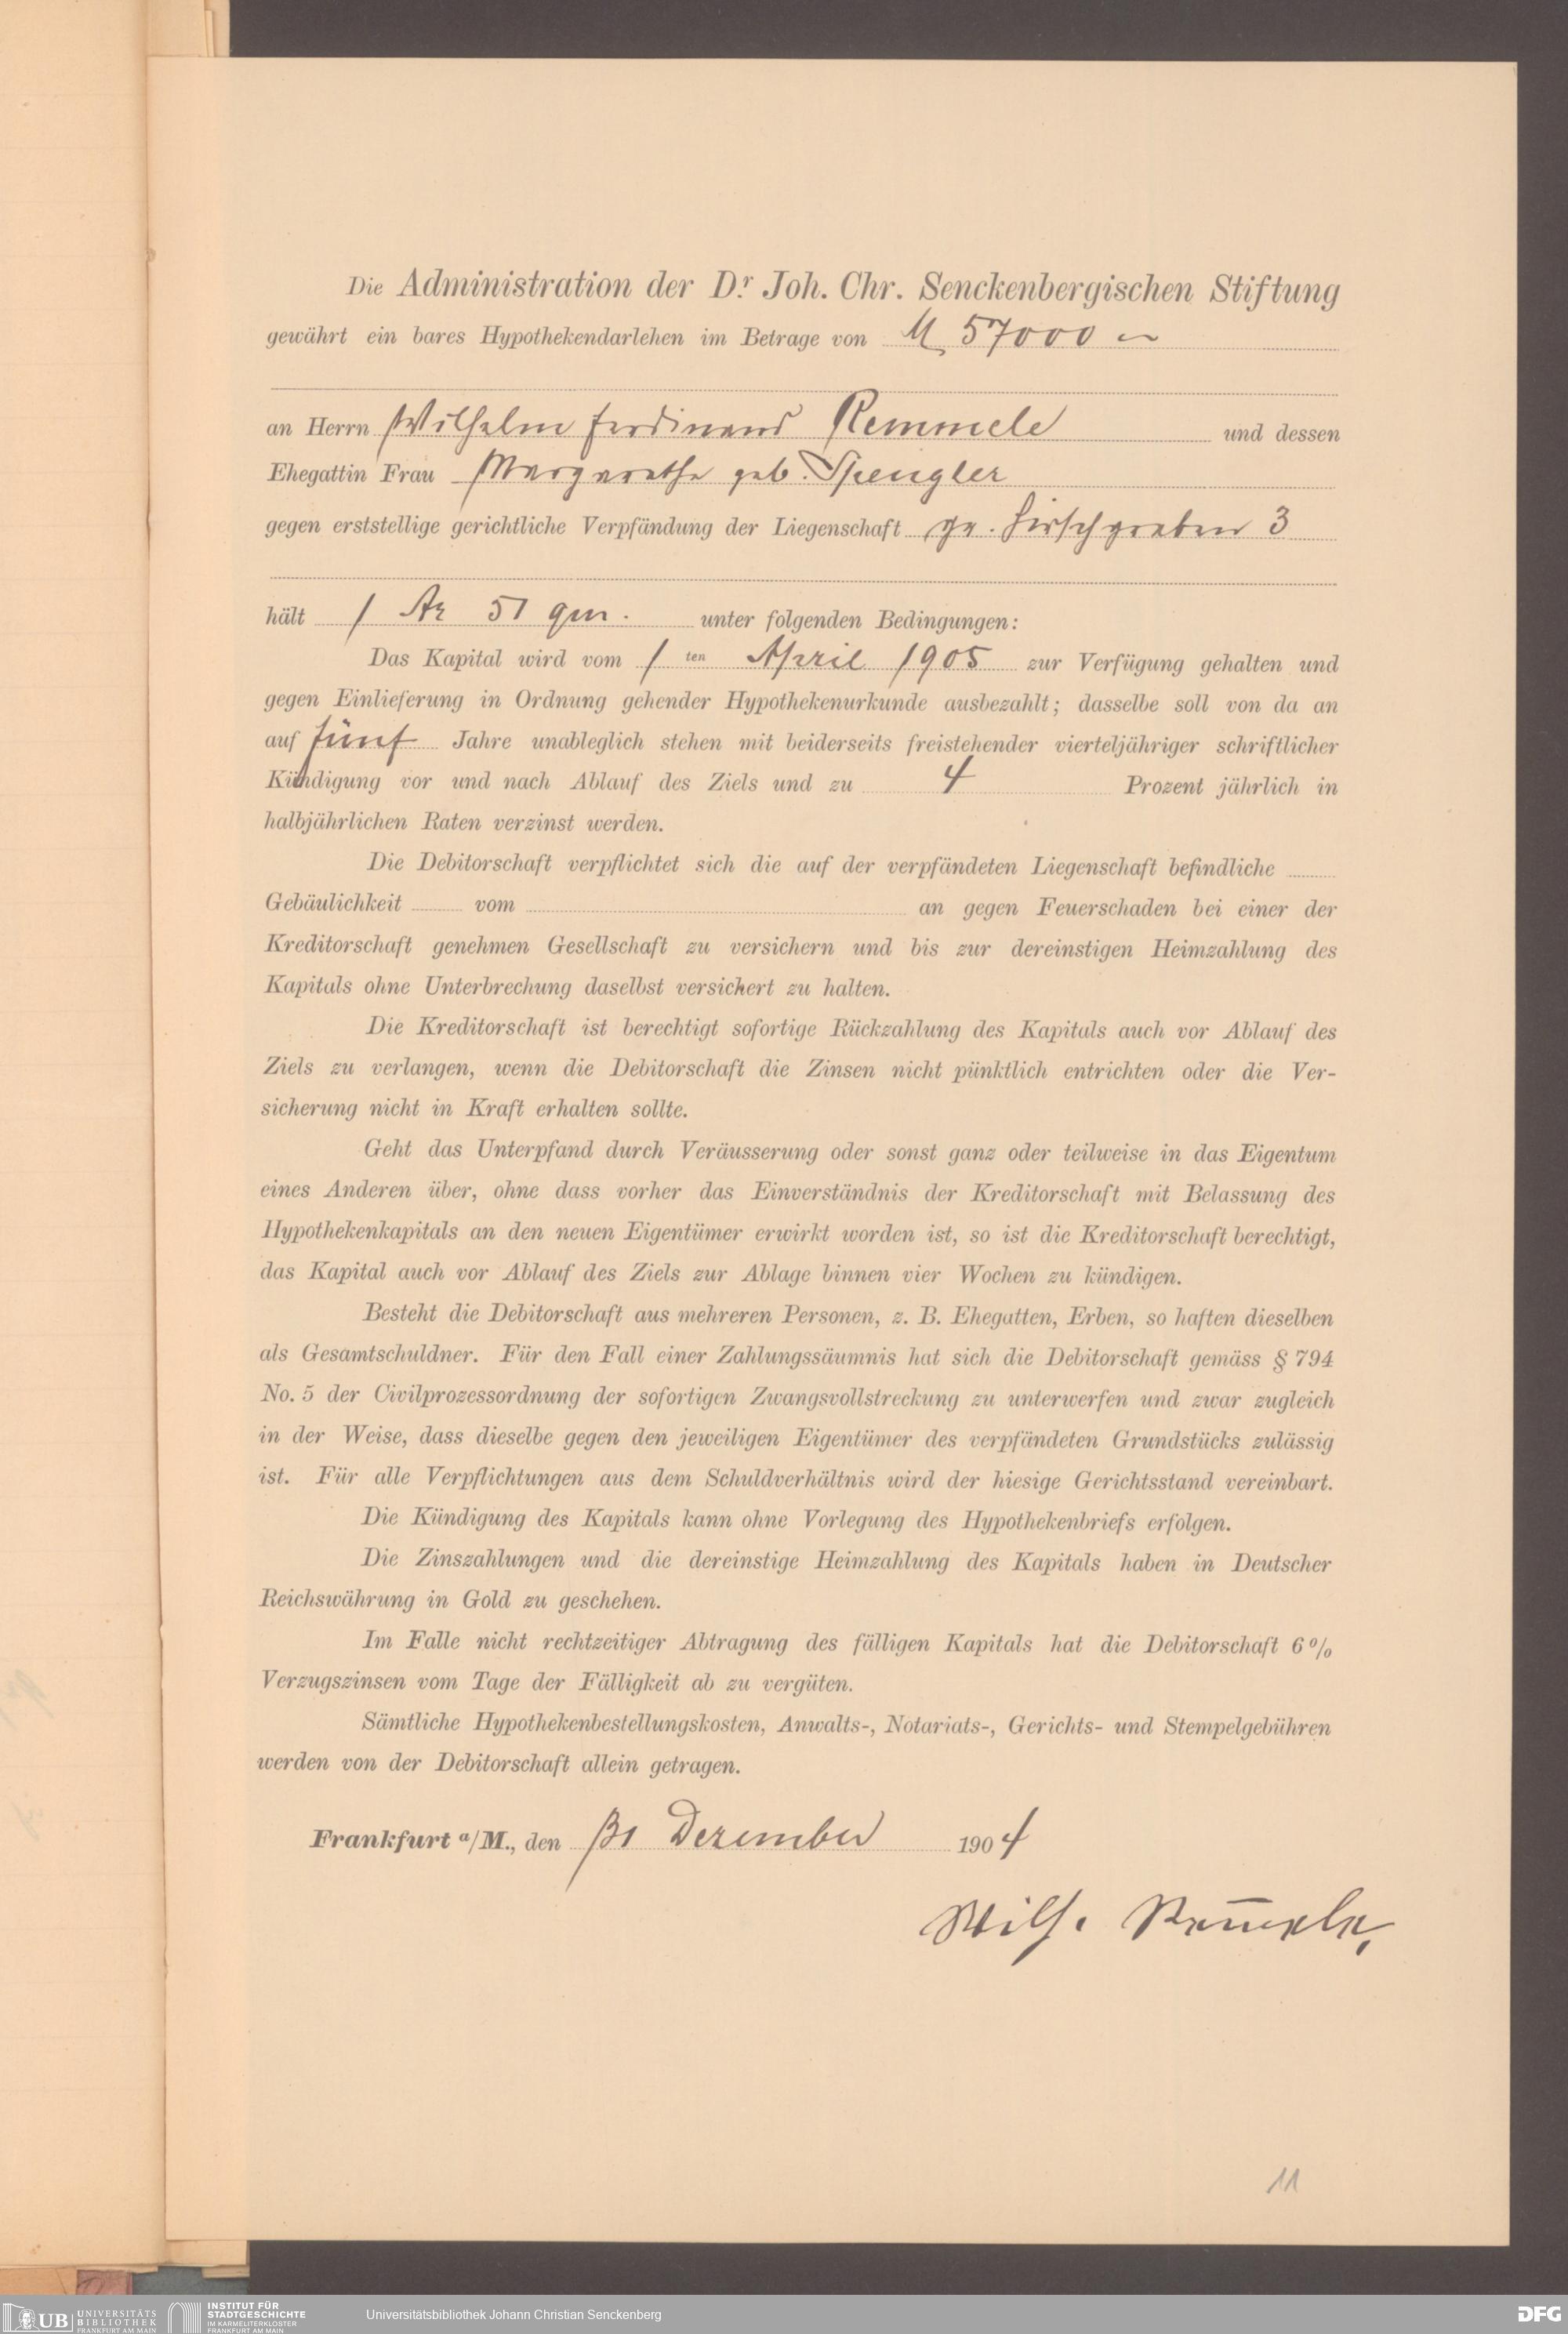 Die Administration der Dr. Joh. Chr. Senckenbergischen Stiftung
gewährt ein bares Hypothekendarlehen im Betrage von M 57000 –
an Herrn Wilhelm Ferdinand Remmele und dessen
Ehegattin Frau Margarethe geb. Spengler
gegen erststellige gerichtliche Verpfändung der Liegenschaft gr. Hirschgraben 3
hält 1 Ar 51 qm. unter folgenden Bedingungen:
Das Kapital wird vom 1 ten April 1905 zur Verfügung gehalten und
gegen Einlieferung in Ordnung gehender Hypothekenurkunde ausbezahlt; dasselbe soll von da an
auf fünf Jahre unableglich stehen mit beiderseits freistehender vierteljähriger schriftlicher
Kündigung vor und nach Ablauf des Ziels und zu 4 Prozent jährlich in
halbjährlichen Raten verzinst werden.
Die Debitorschaft verpflichtet sich die auf der verpfändeten Liegenschaft befindliche
Gebäulichkeit vom an gegen Feuerschaden bei einer der
Kreditorschaft genehmen Gesellschaft zu versichern und bis zur dereinstigen Heimzahlung des
Kapitals ohne Unterbrechung daselbst versichert zu halten.
Die Kreditorschaft ist berechtigt sofortige Rückzahlung des Kapitals auch vor Ablauf des
Ziels zu verlangen, wenn die Debitorschaft die Zinsen nicht pünktlich entrichten oder die Ver-
sicherung nicht in Kraft erhalten sollte.
Geht das Unterpfand durch Veräusserung oder sonst ganz oder teilweise in das Eigentum
eines Anderen über, ohne dass vorher das Einverständnis der Kreditorschaft mit Belassung des
Hypothekenkapitals an den neuen Eigentümer erwirkt worden ist, so ist die Kreditorschaft berechtigt,
das Kapital auch vor Ablauf des Ziels zur Ablage binnen vier Wochen zu kündigen.
Besteht die Debitorschaft aus mehreren Personen, z. B. Ehegatten, Erben, so haften dieselben
als Gesamtschuldner. Für den Fall einer Zahlungssäumnis hat sich die Debitorschaft gemäss § 794
No. 5 der Civilprozessordnung der sofortigen Zwangsvollstreckung zu unterwerfen und zwar zugleich
in der Weise, dass dieselbe gegen den jeweiligen Eigentümer des verpfändeten Grundstücks zulässig
ist. Für alle Verpflichtungen aus dem Schuldverhältnis wird der hiesige Gerichtsstand vereinbart.
Die Kündigung des Kapitals kann ohne Vorlegung des Hypothekenbriefs erfolgen.
Die Zinszahlungen und die dereinstige Heimzahlung des Kapitals haben in Deutscher
Reichswährung in Gold zu geschehen.
Im Falle nicht rechtzeitiger Abtragung des fälligen Kapitals hat die Debitorschaft 6 %
Verzugszinsen vom Tage der Fälligkeit ab zu vergüten.
Sämtliche Hypothekenbestellungskosten, Anwalts-, Notariats-, Gerichts- und Stempelgebühren
werden von der Debitorschaft allein getragen.
Frankfurt a/M., den 31 Dezember 1904
Wilh. Rem̅ele,
11
UB UNIVERSITÄTS BIBLIOTHEK FRANKFURT AM MAIN
INSTITUT FÜR STADTGESCHICHTE IM KARMELITERKLOSTER FRANKFURT AM MAIN
Universitätsbibliothek Johann Christian Senckenberg
DFG